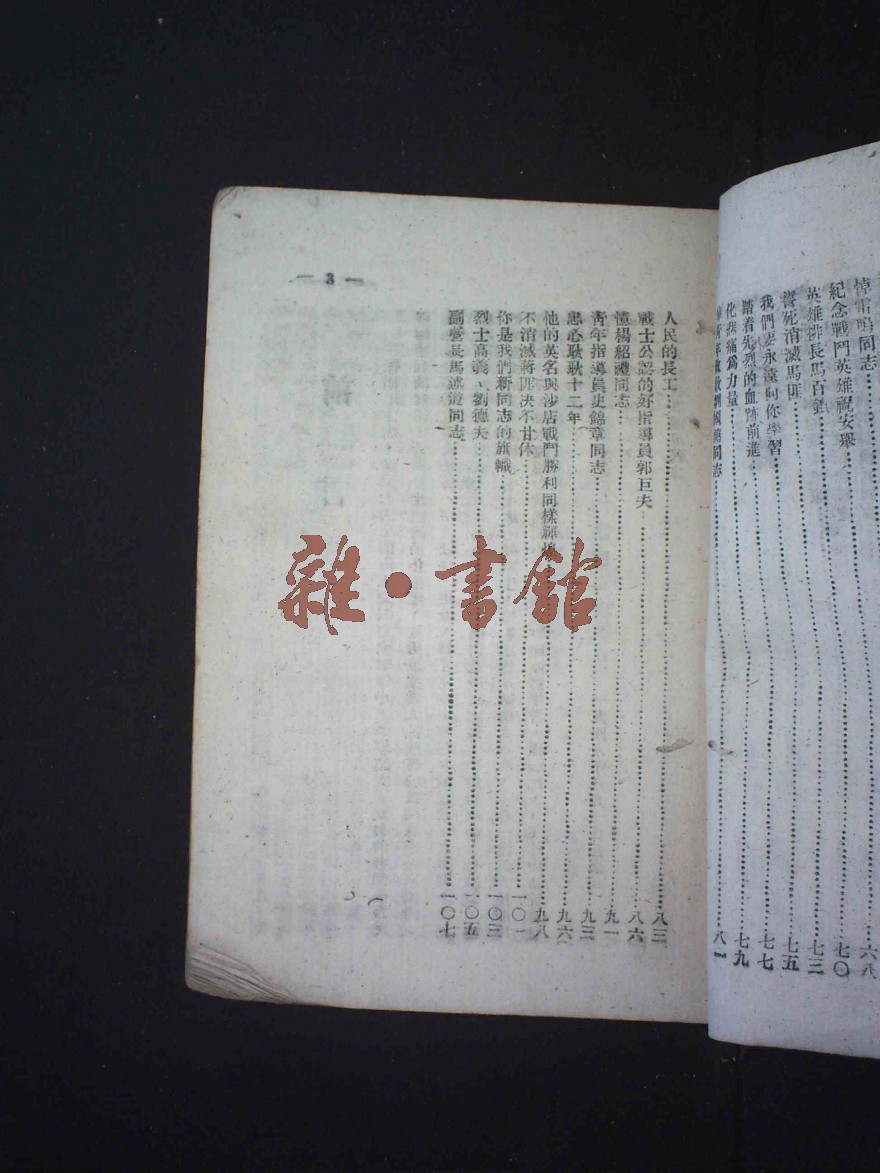 悼雷鳴同志……六八
紀念戰鬥英雄祝安舉……七〇
英雄排長馬百劍……七三
誓死消滅馬匪……七五
我們要永遠向你學習……七七
踏着先烈的血跡前進……七九
化悲痛爲力量
同志……八一
— 3 —
人民的長工……八三
戰士公認的好指導員郭巨夫……八六
憶楊紹禮同志……九一
靑年指導員史錦章同志……九三
忠心耿耿十二年……九六
他的英名與沙店戰鬥勝利同樣輝煌……九八
不消滅蔣匪决不甘休……一〇一
你是我們新同志的旗幟……一〇三
烈士高義、劉德夫……一〇五
副營長馬述遊同志……一〇七
雜·書館